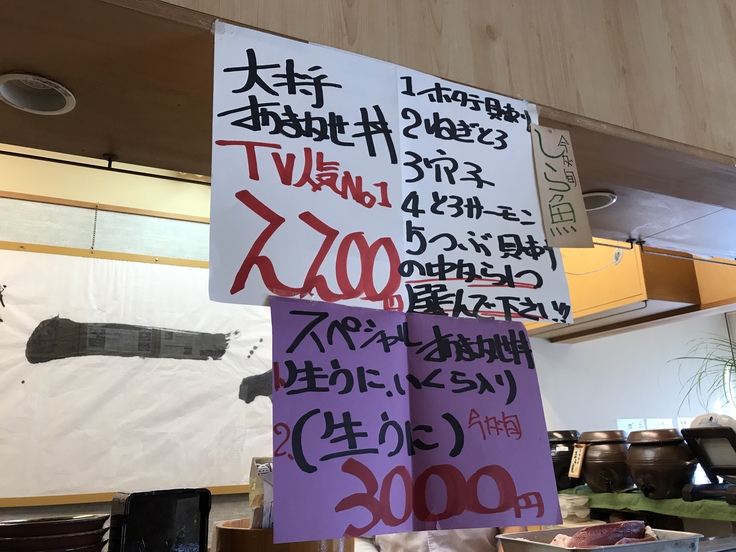 大将
おまかせ丼
TV人気No1
2200円
1ホタテ貝あり
2ねぎとろ
3穴子
4とろサーモン
5つぶ貝あり
の中から1つ
選んで下さい!!
今が旬
しら魚
スペシャルおまかせ丼
1.生うに、いくら入り
2.(生うに)今が旬
3000円